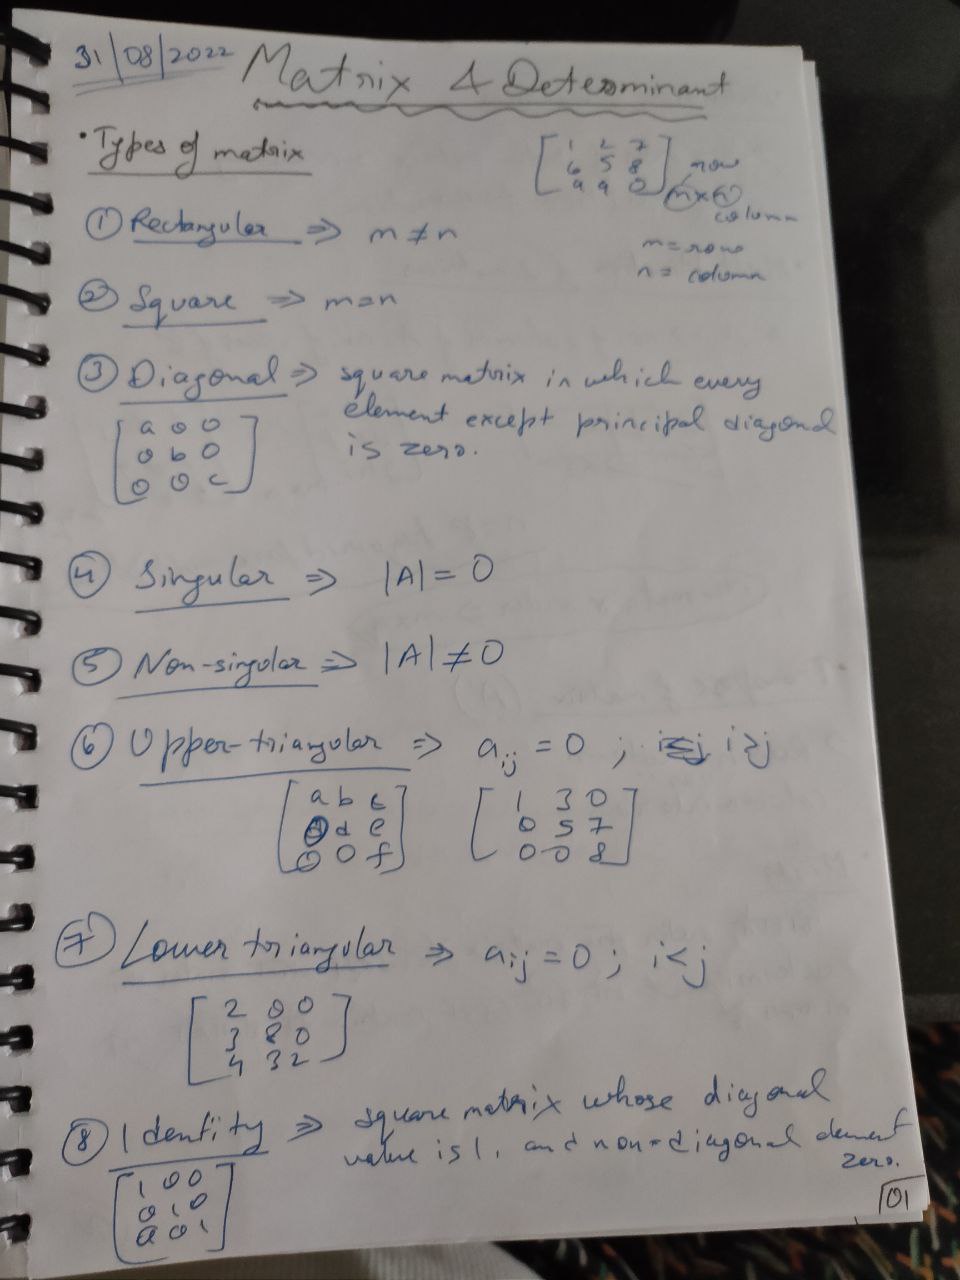 31/08/2022 Matrix & Determinant
• Types of matrix
[1 2 7
6 5 8
9 9 0] row
m×n
column
m = row
n = column
① Rectangular ⇒ m ≠ n
② Square ⇒ m = n
③ Diagonal ⇒ square matrix in which every
element except principal diagonal
is zero.
[a 0 0
0 b 0
0 0 c]
④ Singular ⇒ |A| = 0
⑤ Non-singular ⇒ |A| ≠ 0
⑥ Upper-triangular ⇒ aij = 0 ; i>j
[a b c
0 d e
0 0 f] [1 3 0
0 5 7
0 0 8]
⑦ Lower triangular ⇒ aij = 0 ; i<j
[2 0 0
3 8 0
4 3 2]
⑧ Identity ⇒ square matrix whose diagonal
value is 1, and non-diagonal element
zero.
[1 0 0
0 1 0
0 0 1]
01